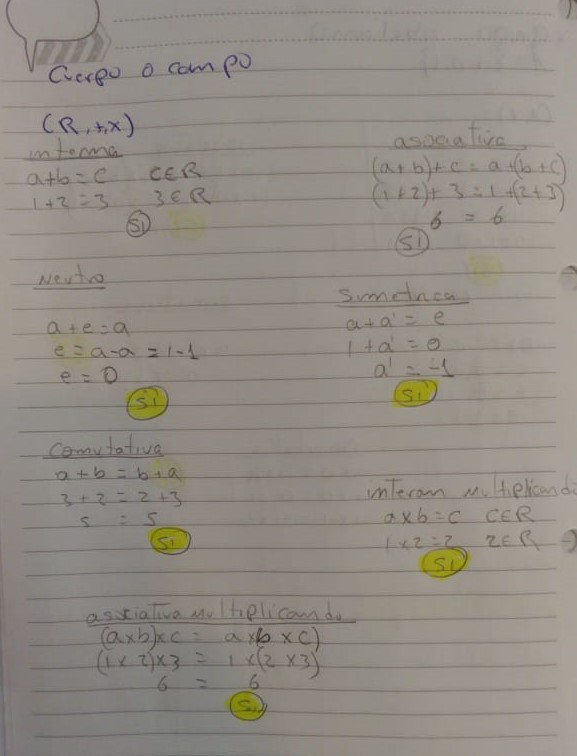 Cuerpo o campo
(R,+,x)
interna
a+b=c C∈R
1+2=3 3∈R
Si
asociativa
(a+b)+c=a+(b+c)
(1+2)+3=1+(2+3)
6 = 6
Si
Neutro
a+e=a
e=a-a=1-1
e=0
Si
Simetrica
a+a'=e
1+a'=0
a'=-1
Si
Comutativa
a+b=b+a
3+2=2+3
5 = 5
Si
interam Multiplicando
axb=c C∈R
1x2=2 2∈R
Si
asociativa Multiplicando
(axb)xc = axb xc)
(1x2)x3 = 1x(2x3)
6 = 6
Si